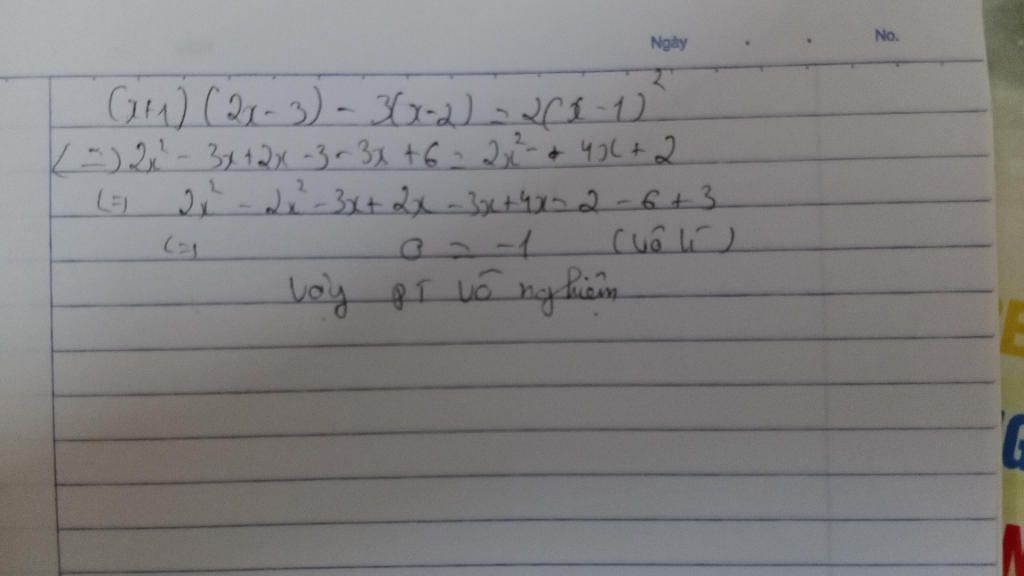 Ngày . . No.
(x+1)(2x-3) - 3(x-2) = 2(x-1)²
(=) 2x² - 3x + 2x - 3 - 3x + 6 = 2x² - + 4x + 2
(=) 2x² - 2x² - 3x + 2x - 3x + 4x = 2 - 6 + 3
(=) 0 = -1 (vô lí)
Vậy PT vô nghiệm
G